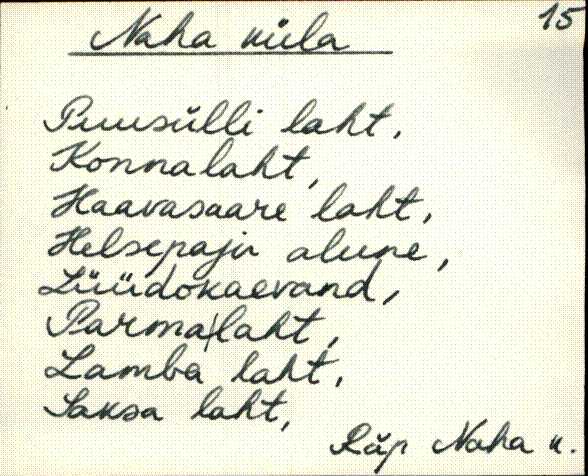 15
Naha küla
Puusülli laht,
Konnalaht,
Haavasaare laht,
Helsepaju alune,
Lüüdokaevand,
Parma|laht,
Lamba laht,
Saksa laht,
Räp Naha k.